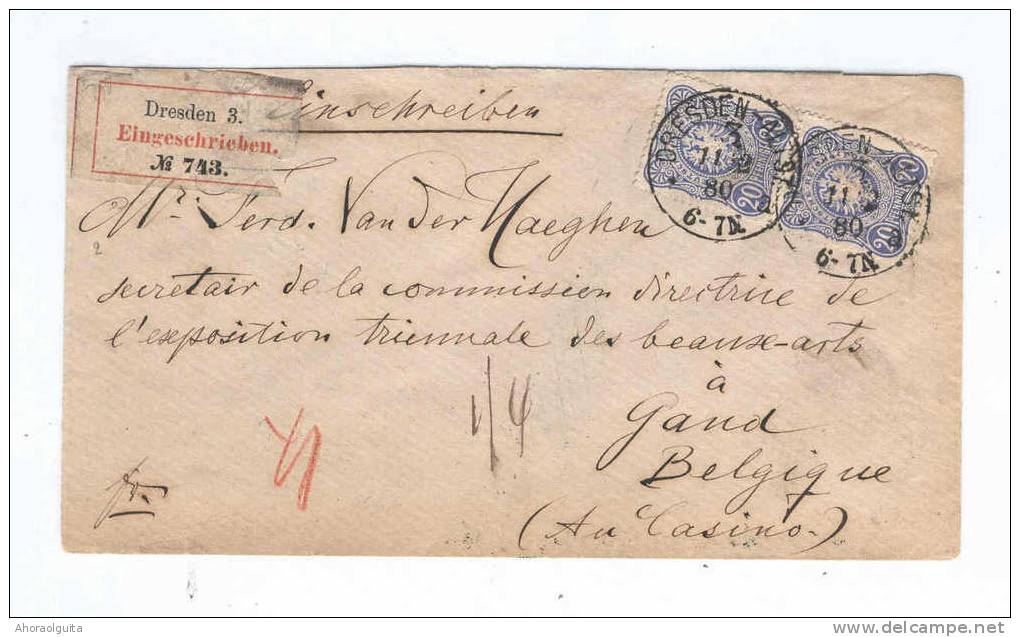 Einschreiben
Dresden 3.
Eingeschrieben.
№ 743.
DRESDEN
3
11 2
80
6-7N.
20
DEN
11 2
80
6-7N
20
Mr. Ferd. Van der Haeghen
secretair de la commission directrice de
l'exposition triennale des beaux-arts
à
Gand
Belgique
(Au Casino.)
1/4
fr.
Ahoraolguita
delcampe.net